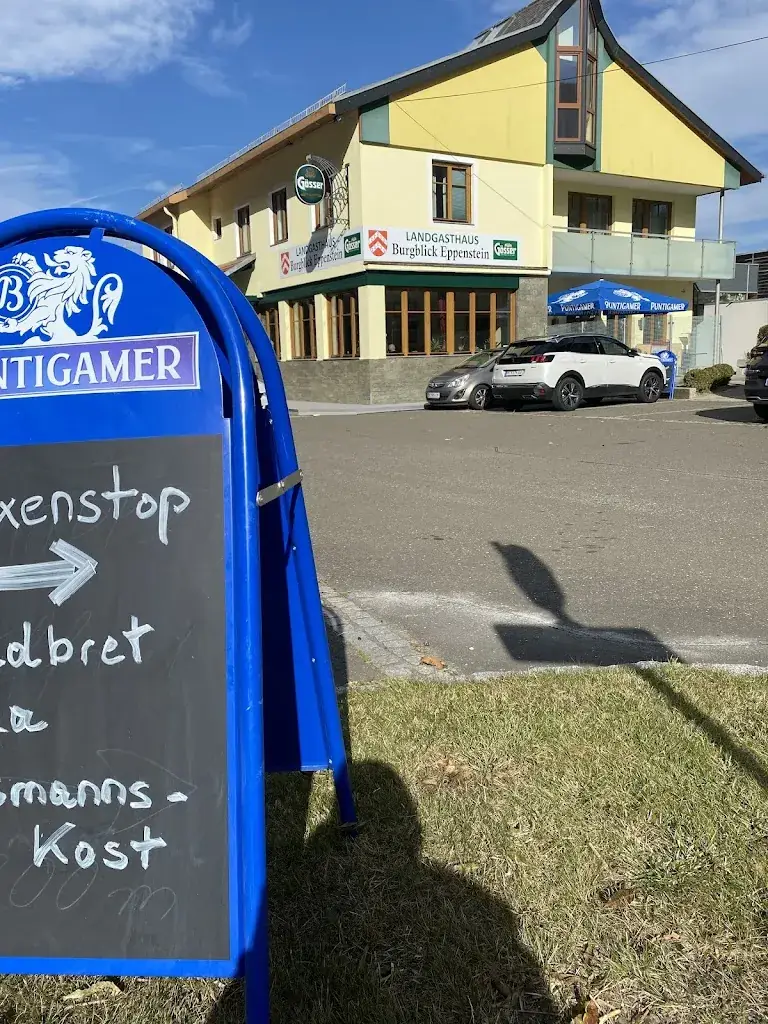 Gösser
LANDGASTHAUS
Burgblick Eppenstein
Gösser
LANDGASTHAUS
Burgblick Eppenstein
Gösser
PUNTIGAMER
PUNTIGAMER
PUNTIGAMER
B
NTIGAMER
xenstop
dbret
a
smanns-
Kost